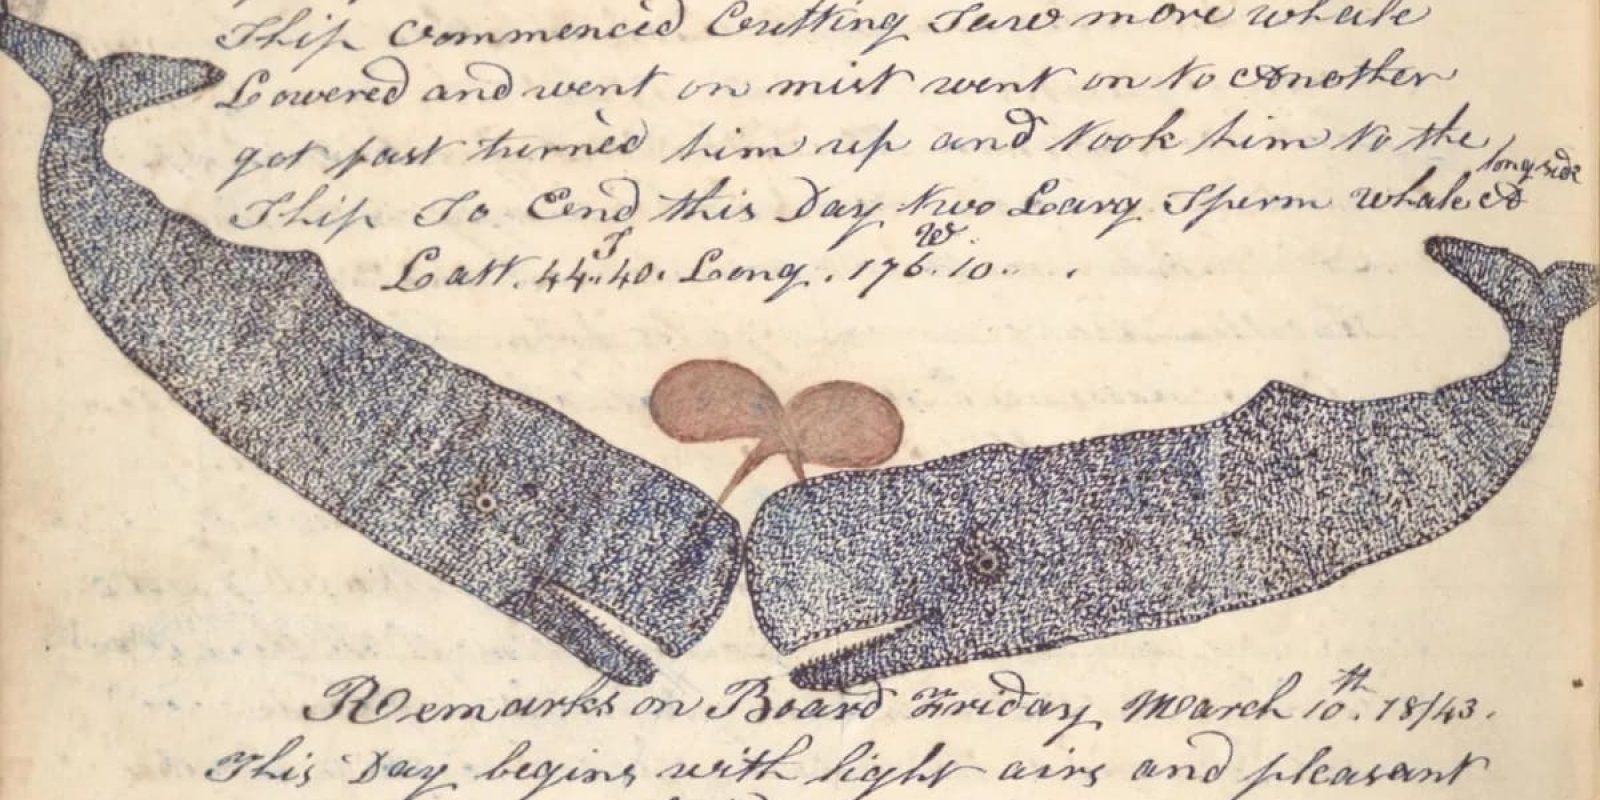 Ship Commenced Cutting Saw more whale
Lowered and went on mist went on to Another
got fast turned him up and took him to the
Ship So Cend this Day two Larg Sperm whale longside
Latt. 44°S 40. Long. 176 W 10.
Remarks on Board Friday March 10th. 18/43.
This Day begins with light airs and pleasant